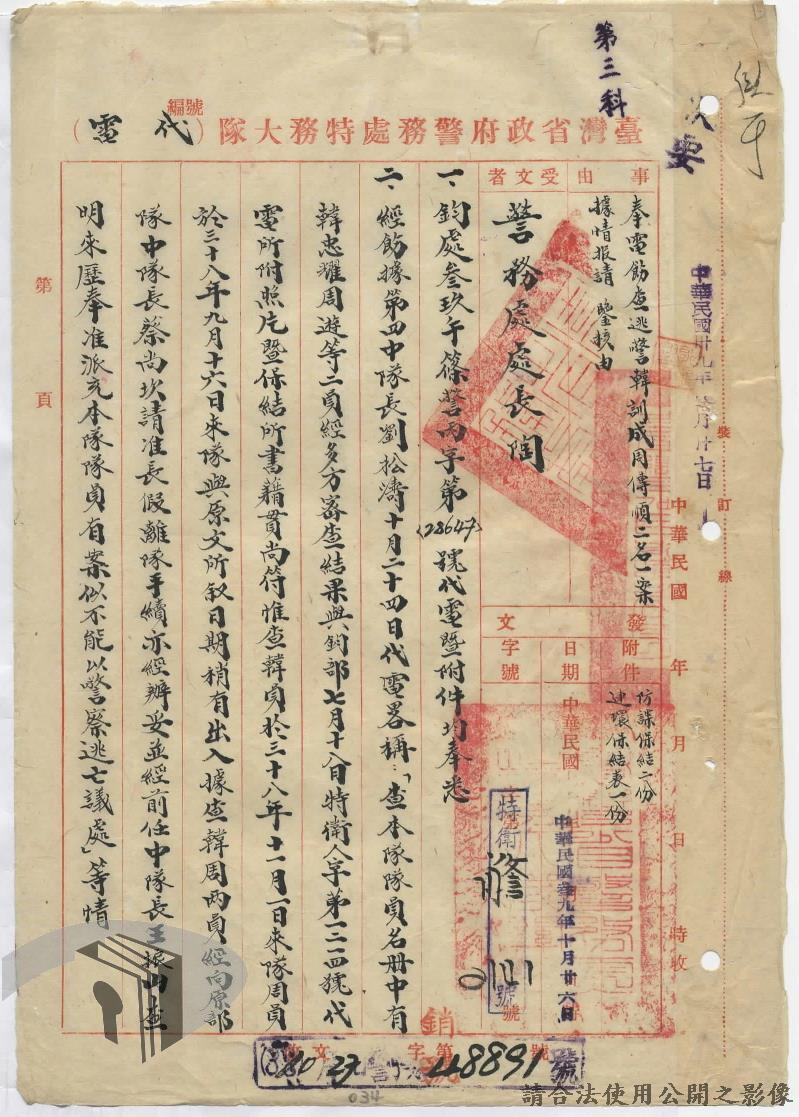 第三科
次要
中華民國卅九年 月廿七日
裝訂線
中華民國 年 月 日 時收
臺灣省政府警務處特務大隊(代電)
編號
事由
奉電飭查逃警韓訓成周傳順二名一案
據情報請 鑒核由
受文者
警務處處長陶
發文
附件
防諜保結二份
連環保結表一份
日期
中華民國
中華民國叁九年十月廿六日
字號
特衛
號
一、鈞處叁玖午篠警丙字第(28647)號代電暨附件均奉悉
二、經飭據第四中隊長劉松濤十月二十四日代電畧稱:「查本隊隊員名册中有
韓忠耀周遊等二員經多方審查結果與鈞部七月十八日特衛人字第一三一四號代
電所附照片暨保結所書籍貫尚符惟查韓員於三十八年十一月一日來隊周員
於三十八年九月十六日來隊與原文所叙日期稍有出入據查韓周兩員經向原部
隊中隊長蔡尚坎請准長假離隊手續亦經辦妥並經前任中隊長王振山查
明來歷奉准派充本隊隊員有案似不能以警察逃亡議處」等情
第 頁
銷號
文 字第48891號
034
請合法使用公開之影像